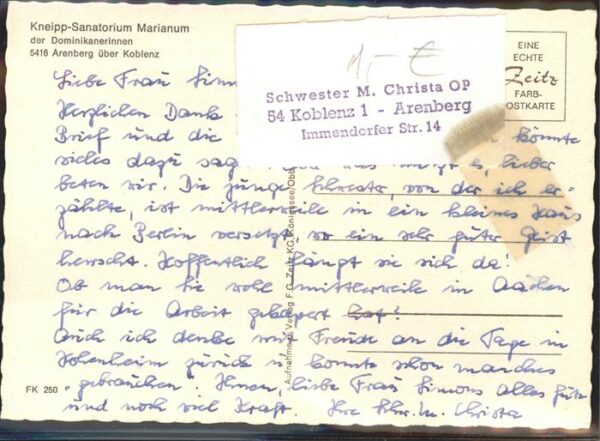 Kneipp-Sanatorium Marianum
der Dominikanerinnen
5416 Arenberg über Koblenz
EINE
ECHTE
Zeitz
FARB-
POSTKARTE
1,- €
Schwester M. Christa OP
54 Koblenz 1 - Arenberg
Immendorfer Str. 14
Liebe Frau Simons
Herzlichen Dank
Brief und die könnte
vieles dazu sag es, lieber
beten wir. Die junge Schwester, von der ich er-
zählte, ist mittlerweile in ein kleines Haus
nach Berlin versetzt, wo ein sehr guter Geist
herrscht. Hoffentlich fängt sie sich da!
Ob man Sie wohl mittlerweile in Aachen
für die Arbeit gekapert hat?
Auch ich denke mit Freude an die Tage in
Hohenheim zurück u. konnte schon manches
"gebrauchen". Ihnen, liebe Frau Simons alles Gute
und noch viel Kraft. Ihre Schw. M. Christa
Aufnahme u. Verlag F. G. Zeitz KG, Königssee/Obb
FK 250